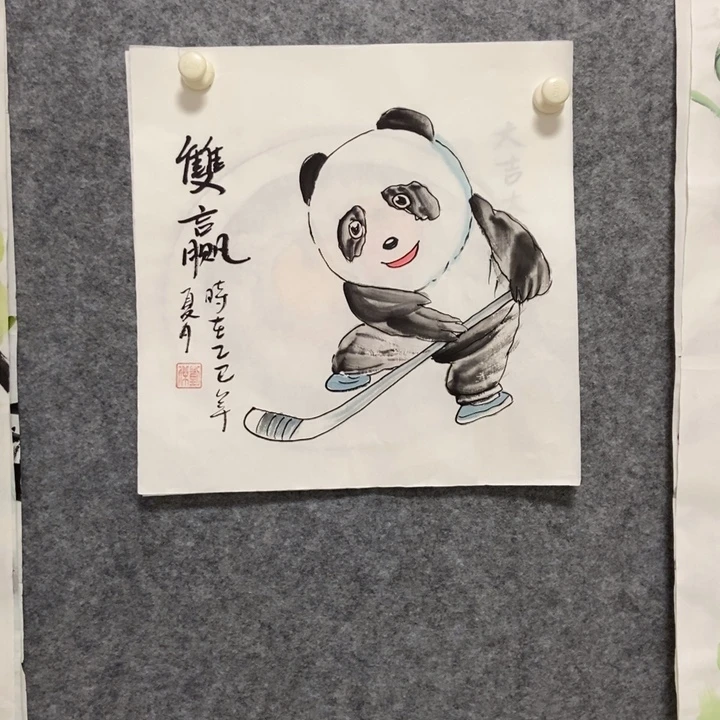 雙贏
時在乙巳年
夏月
大吉